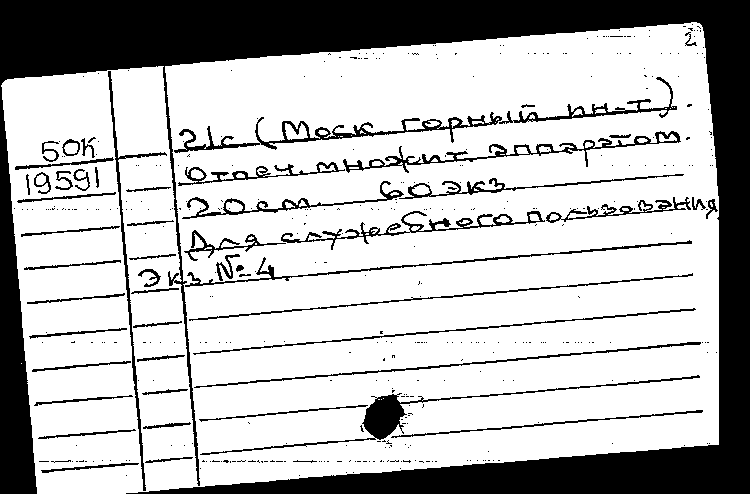 2
21с (Моск горный ин-т).
50К
Отпеч. множит. аппаратом.
19591
20 см. 60 экз.
Для служебного пользования
Экз. № 4.